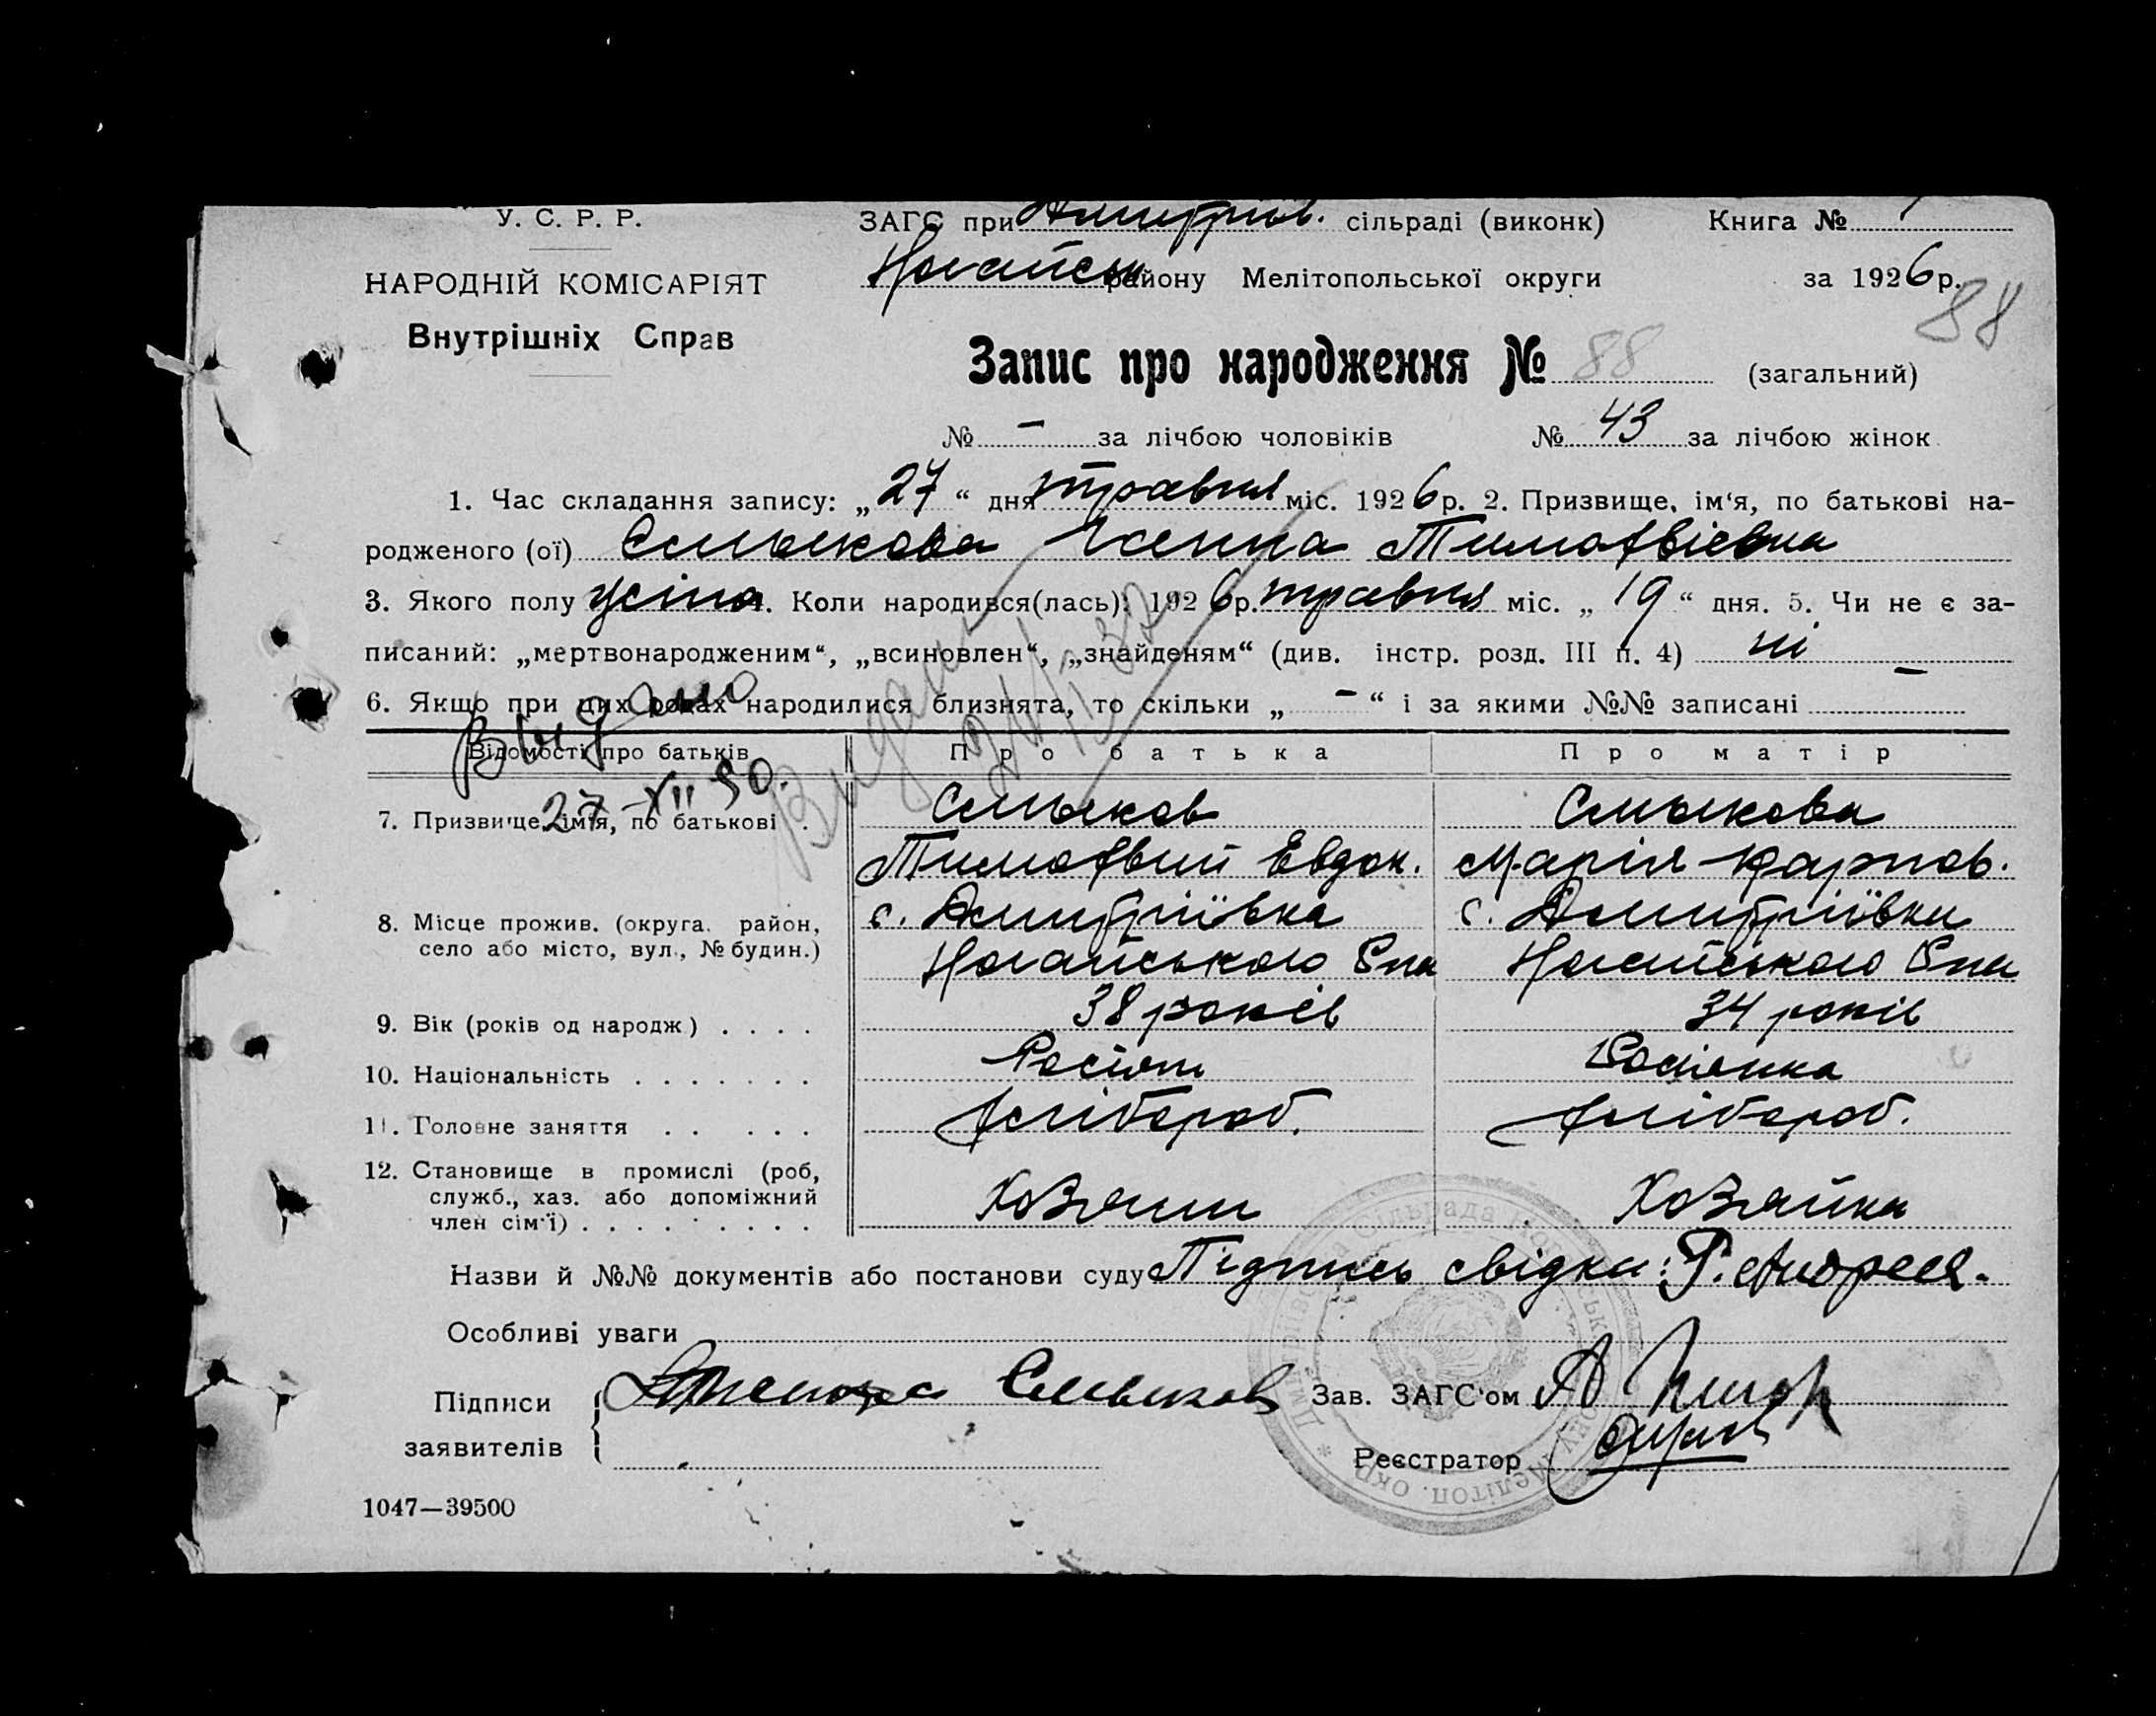 У. С. Р. Р.
НАРОДНІЙ КОМІСАРІЯТ
Внутрішніх Справ
ЗАГС при Дмитрів. сільраді (виконк) Книга №
Ногайськ району Мелітопольської округи за 1926 р.
88
Запис про народження № 88 (загальний)
№ – за лічбою чоловіків № 43 за лічбою жінок
1. Час складання запису: „27“ дня травня міс. 1926 р. 2. Призвище, ім‘я, по батькові на-
родженого (ої) Смыкова Тимофвієвна
3. Якого полу 4. Коли народився(лась): 1926 р. травня міс. „19“ дня. 5. Чи не є за-
писаний: „мертвонародженим“, „всиновлен“, „знайденям“ (див. інстр. розд. III п. 4) ні
6. Якщо при цих родах народилися близнята, то скільки „–“ і за якими №№ записані –
Видано
27-XII 50.
Видано
Відомості про батьків Про батька Про матір
7. Призвище, ім'я, по батькові . Смыков Смыкова
Тимофвий Евдок. Марія Карпов.
8. Місце прожив. (округа, район, с. Дмитріївка с. Дмитріївки
село або місто, вул., № будин.) Ногайського Р-на Ногайського Р-на
9. Вік (років од народж.) . . . . 38 років 34 років
10. Національність . . . . . . . Росіян Росіянка
11. Головне заняття . . . . . Хлібороб. Хлібороб.
12. Становище в промислі (роб,
служб., хаз. або допоміжний Хозяин Хозяйка
член сім'ї) . . . . . . . . .
Назви й №№ документів або постанови суду Підпись свідка: Р. Андреев.
Особливі уваги
Підписи
заявителів
Смыков
Зав. ЗАГС'ом
Реєстратор
1047—39500